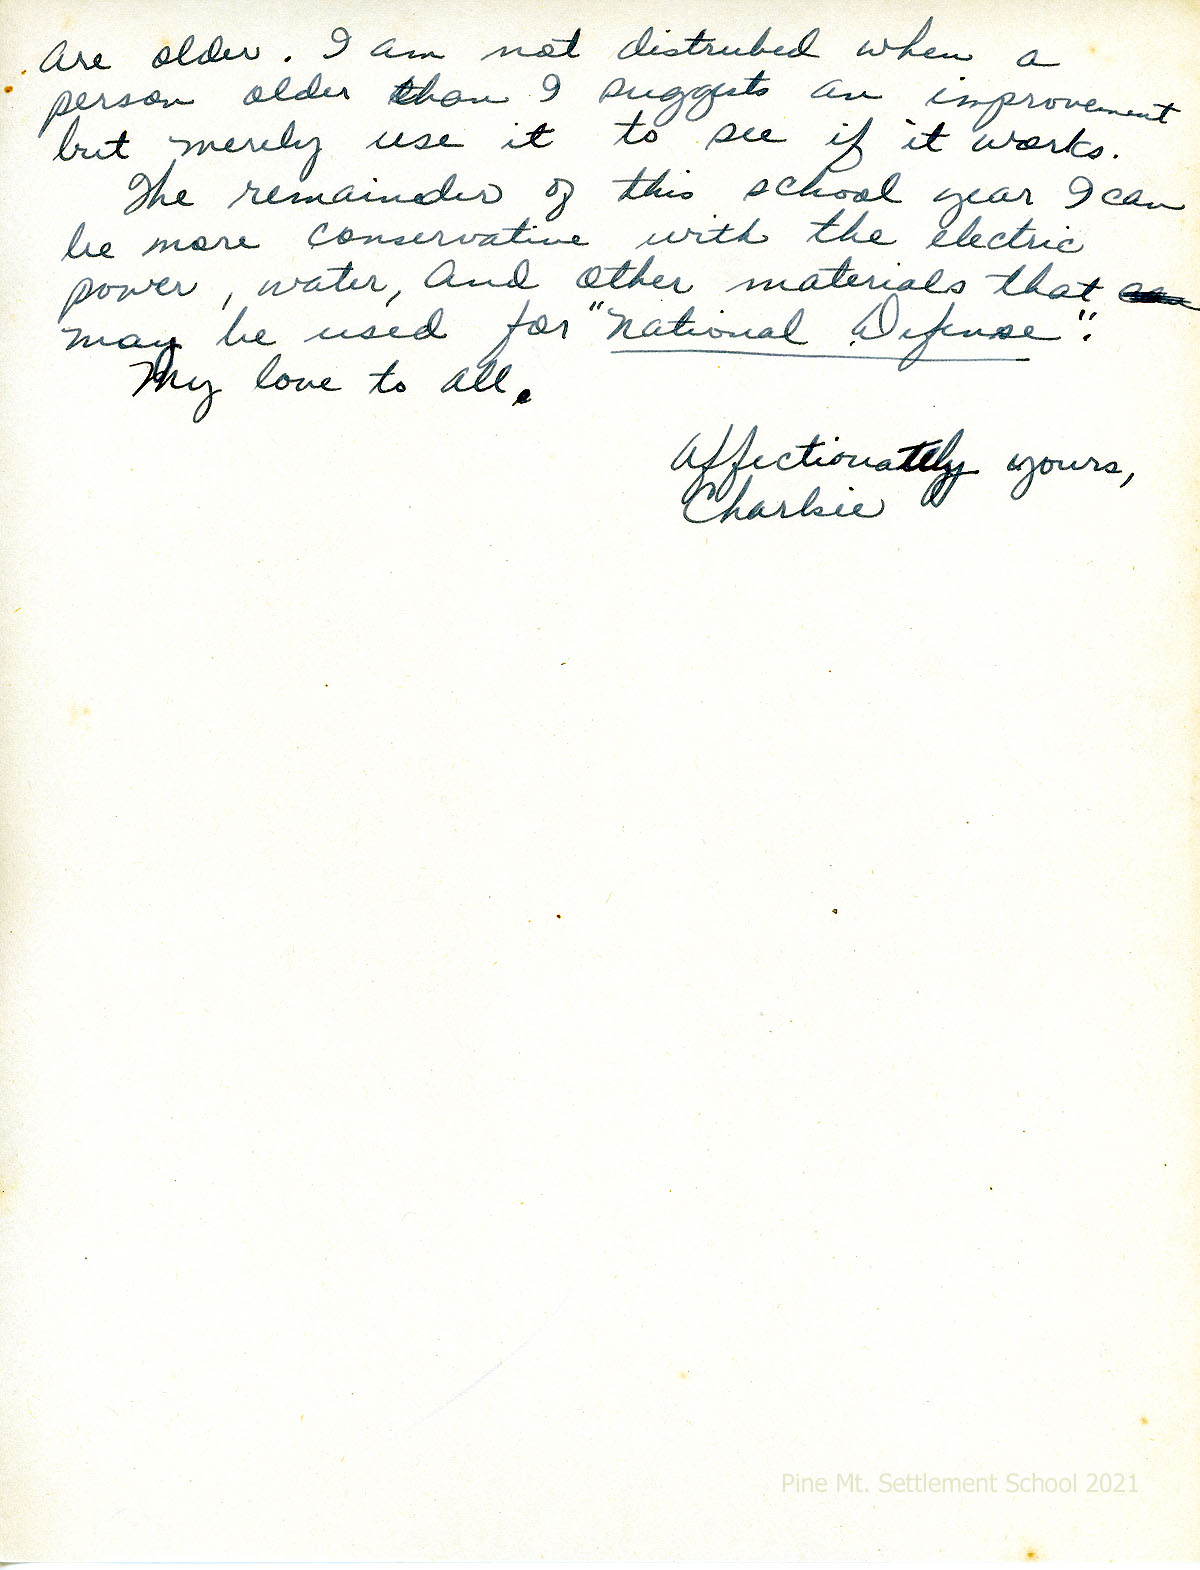 are older. I am not distrubed when a
person older than I suggests an improvement
but merely use it to see if it works.
The remainder of this school year I can
be more conservative with the electric
power, water, and other materials that
may be used for "National Defense".
My love to all.
Affectionately yours,
Charlsie
Pine Mt. Settlement School 2021